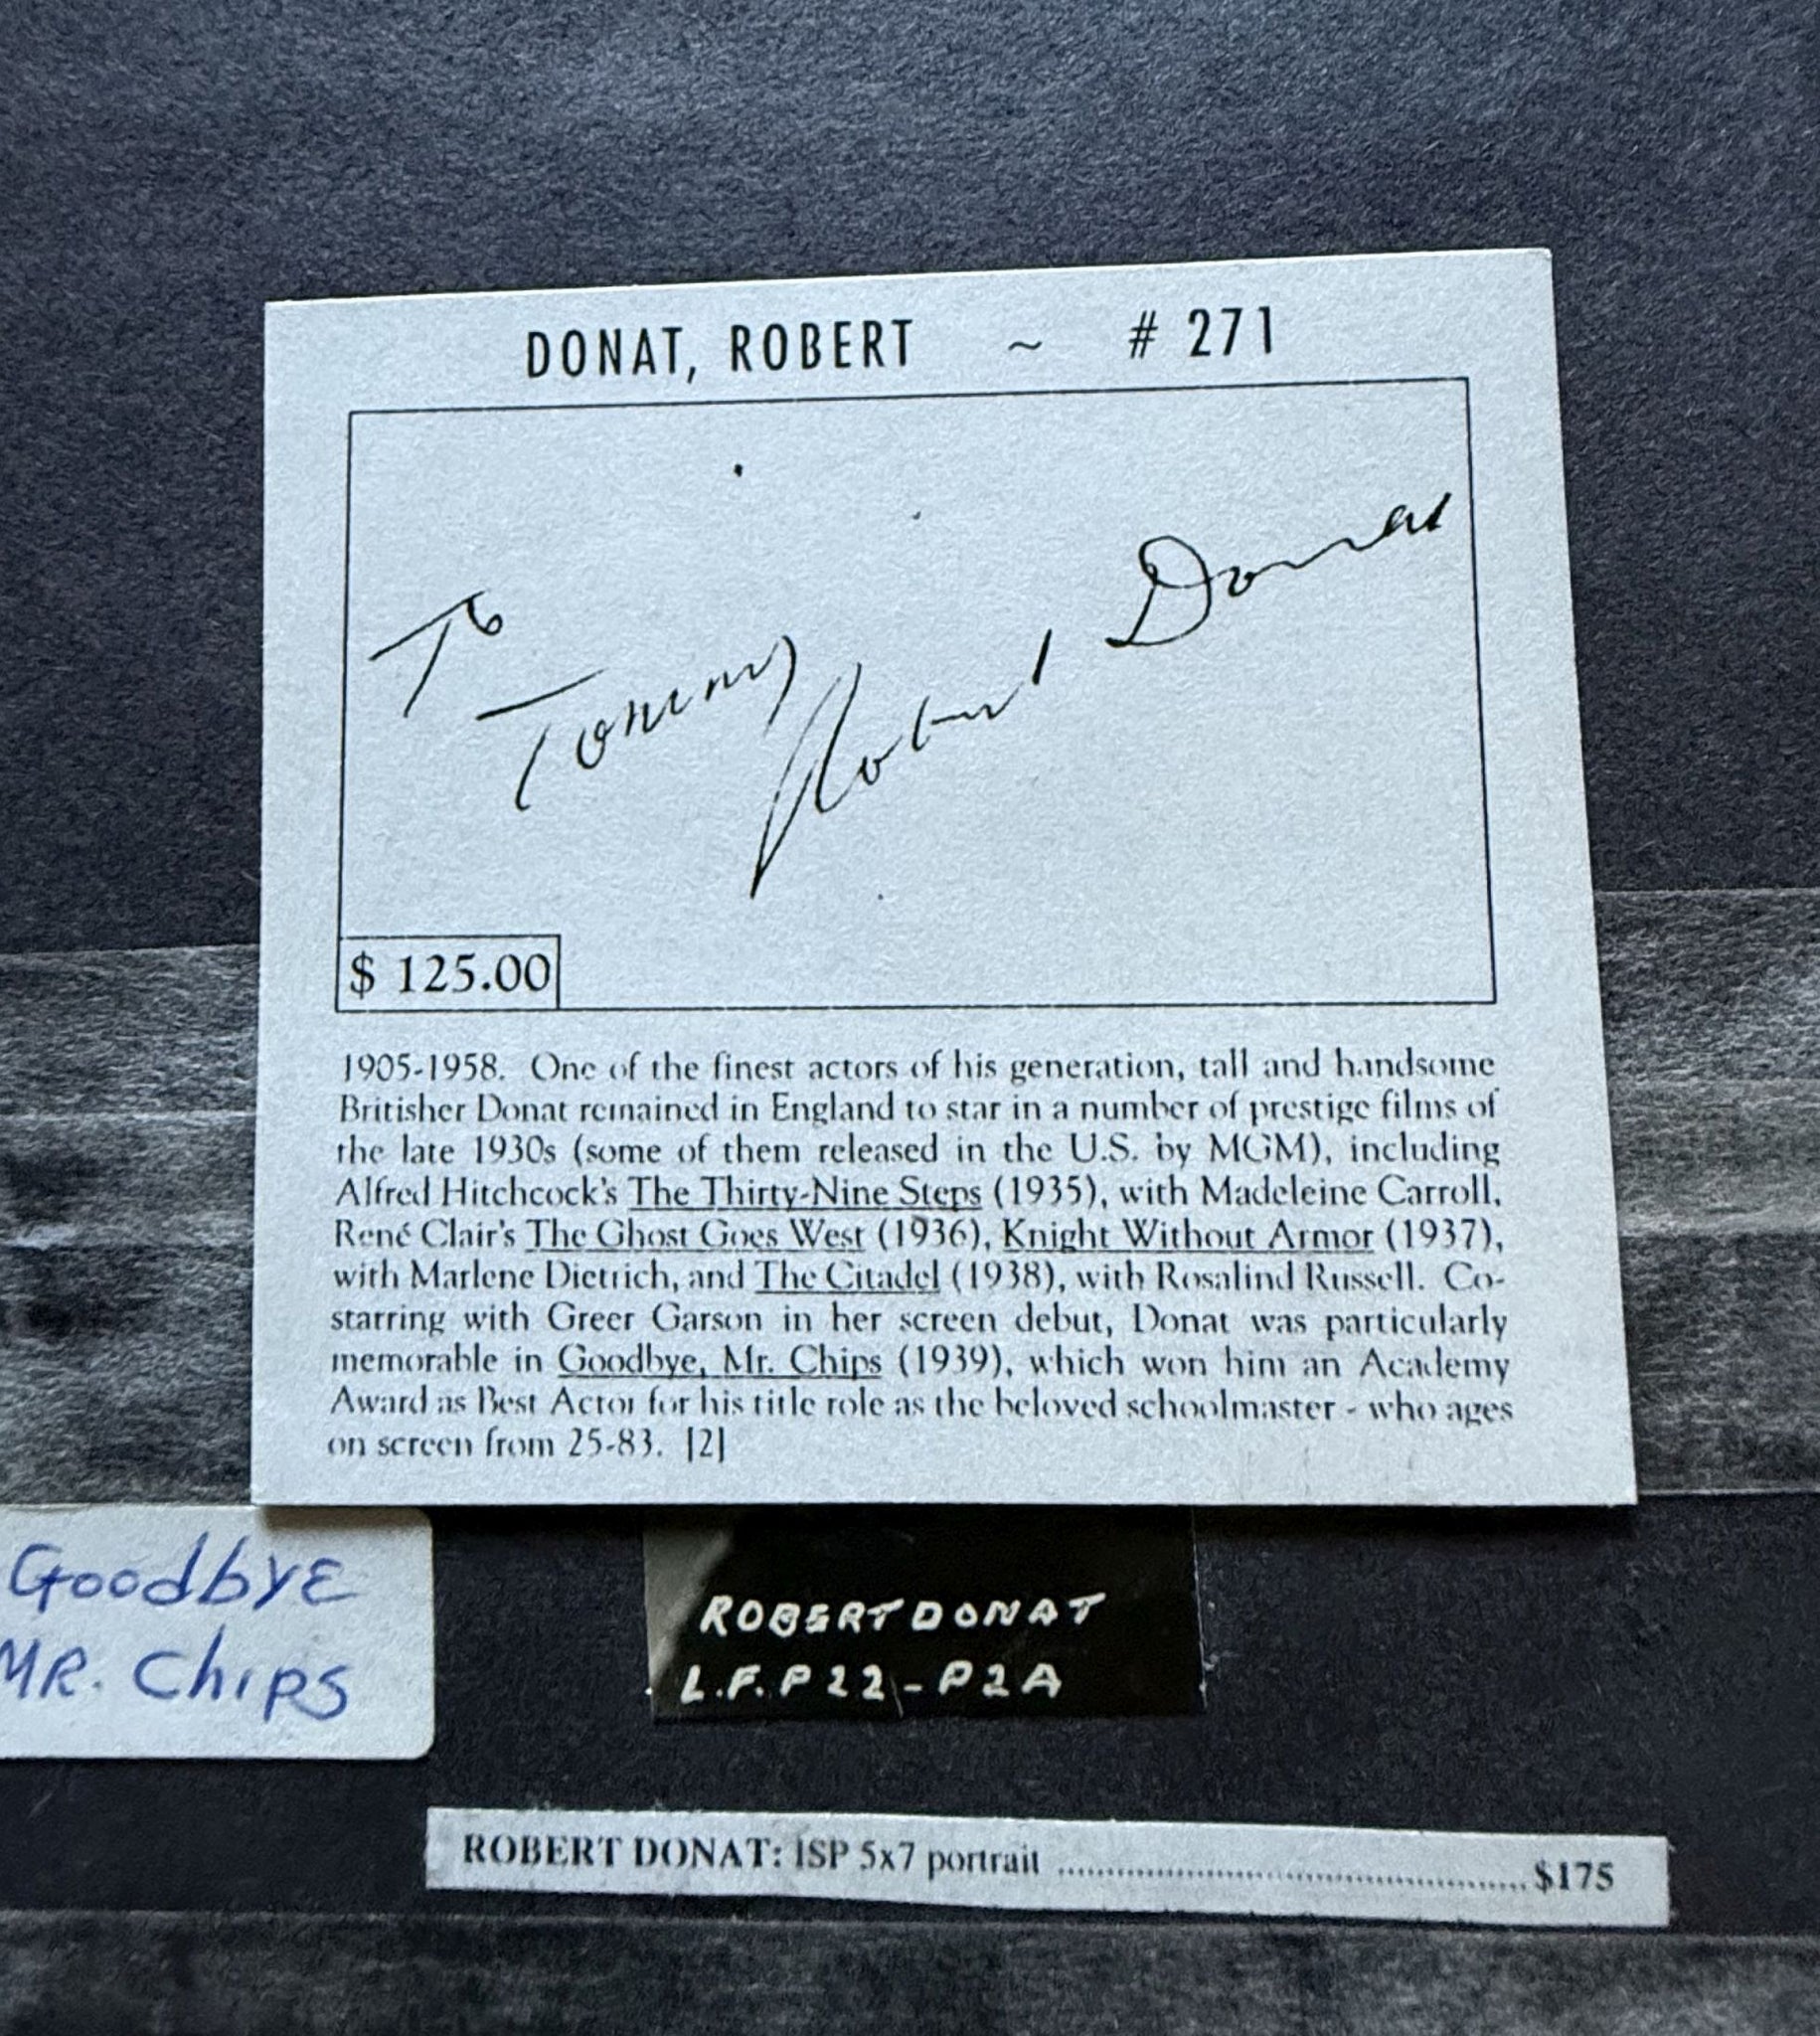 DONAT, ROBERT ~ # 271
To
Tommy
Robert Donat
$ 125.00
1905-1958. One of the finest actors of his generation, tall and handsome
Britisher Donat remained in England to star in a number of prestige films of
the late 1930s (some of them released in the U.S. by MGM), including
Alfred Hitchcock's The Thirty-Nine Steps (1935), with Madeleine Carroll,
René Clair's The Ghost Goes West (1936), Knight Without Armor (1937),
with Marlene Dietrich, and The Citadel (1938), with Rosalind Russell. Co-
starring with Greer Garson in her screen debut, Donat was particularly
memorable in Goodbye, Mr. Chips (1939), which won him an Academy
Award as Best Actor for his title role as the beloved schoolmaster - who ages
on screen from 25-83. [2]
Goodbye
MR. Chips
ROBERT DONAT
L.F. P22-P2A
ROBERT DONAT: ISP 5x7 portrait ........................................ $175